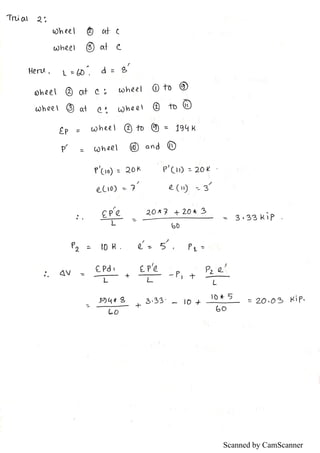 Trial 2:
wheel ② at C
wheel ③ at C
Here, L = 60', d = 8'
wheel ② at C : wheel ① to ⑨
wheel ③ at C : wheel ① to ⑪
ΣP = wheel ① to ⑨ = 194 K
P' = wheel ⑩ and ⑪
P'(10) = 20K P'(11) = 20K
e(10) = 7' e(11) = 3'
∴ ΣP'e / L = 20*7 + 20*3 / 60 = 3.33 Kip.
P₂ = 10 K. e' = 5', P₁ =
∴ ΔV = ΣPd₁ / L + ΣP'e / L - P₁ + P₂ e' / L
= 194*8 / 60 + 3.33 - 10 + 10*5 / 60 = 20.03 Kip.
Scanned by CamScanner